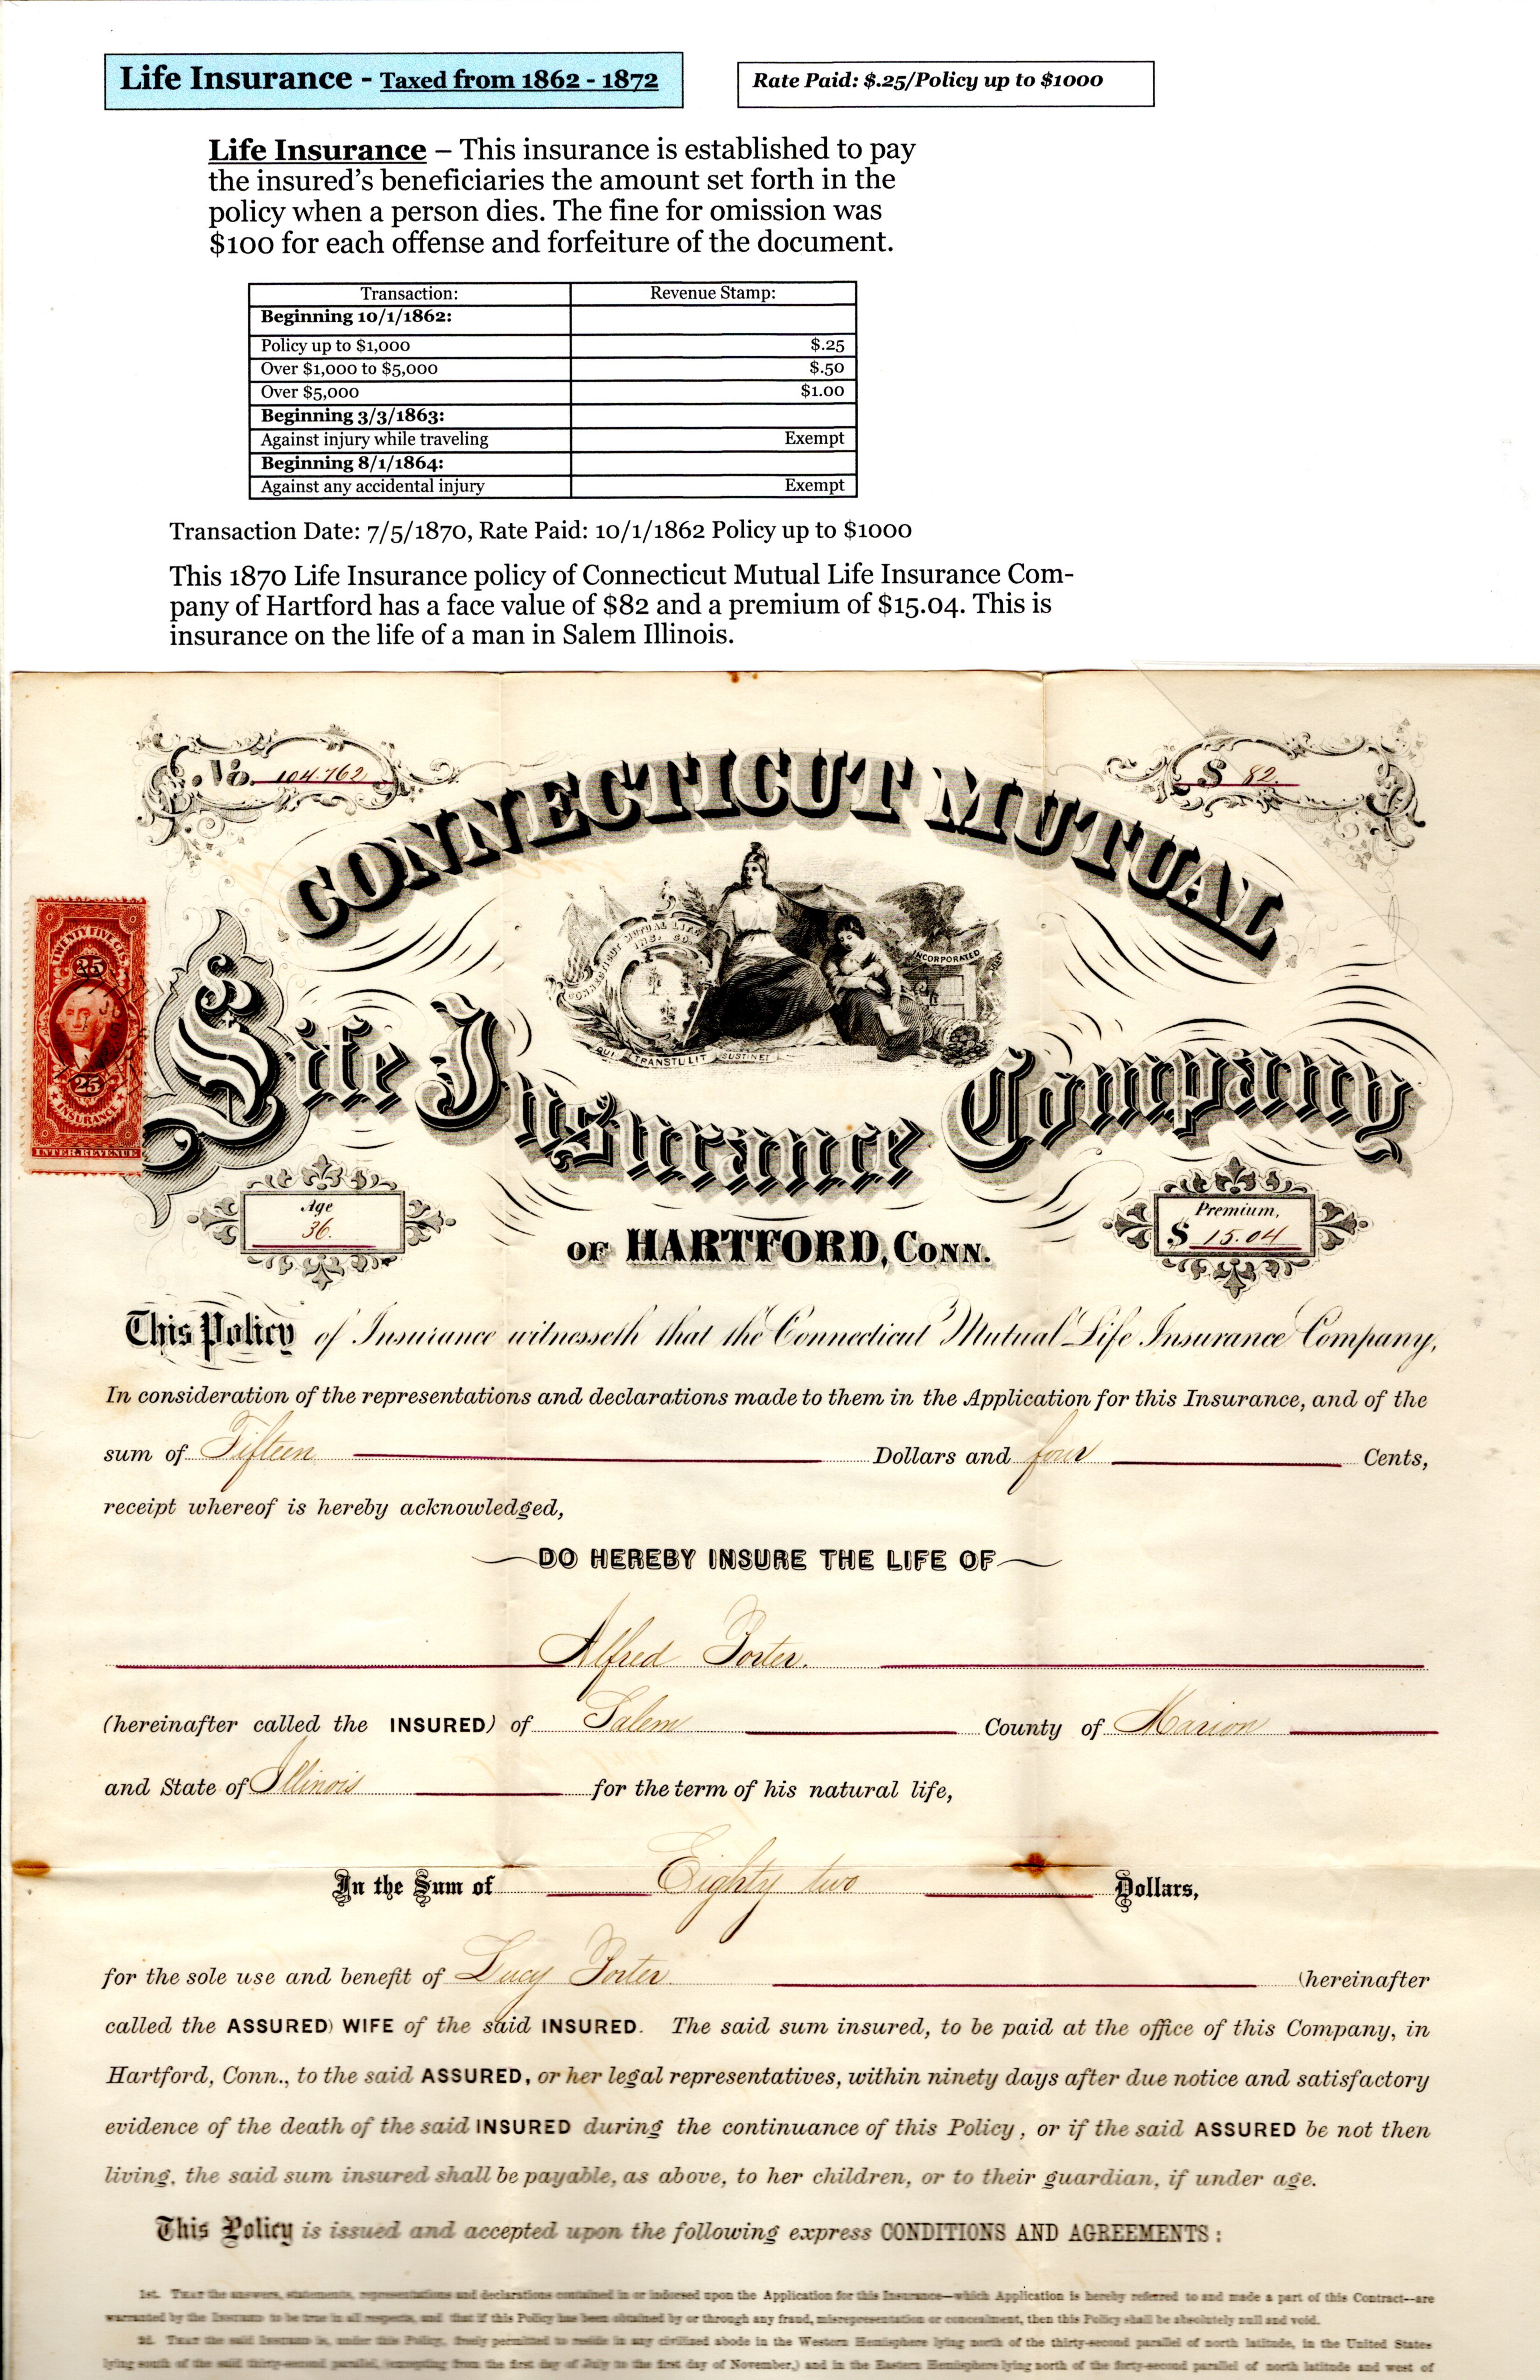 Life Insurance - Taxed from 1862 - 1872
Rate Paid: $.25/Policy up to $1000
Life Insurance – This insurance is established to pay
the insured's beneficiaries the amount set forth in the
policy when a person dies. The fine for omission was
$100 for each offense and forfeiture of the document.
Transaction: Revenue Stamp:
Beginning 10/1/1862:
Policy up to $1,000 $.25
Over $1,000 to $5,000 $.50
Over $5,000 $1.00
Beginning 3/3/1863:
Against injury while traveling Exempt
Beginning 8/1/1864:
Against any accidental injury Exempt
Transaction Date: 7/5/1870, Rate Paid: 10/1/1862 Policy up to $1000
This 1870 Life Insurance policy of Connecticut Mutual Life Insurance Com-
pany of Hartford has a face value of $82 and a premium of $15.04. This is
insurance on the life of a man in Salem Illinois.
No. 104.762
$ 82.
CONNECTICUT MUTUAL
CONNECTICUT MUTUAL LIFE
INS. CO.
INCORPORATED
QUI TRANSTULIT SUSTINET
TWENTY FIVE CTS.
25
25
INSURANCE
INTER. REVENUE
Life Insurance Company
Age
36.
OF HARTFORD, CONN.
Premium,
$ 15.04
This Policy of Insurance witnesseth that the Connecticut Mutual Life Insurance Company,
In consideration of the representations and declarations made to them in the Application for this Insurance, and of the
sum of Fifteen Dollars and four Cents,
receipt whereof is hereby acknowledged,
DO HEREBY INSURE THE LIFE OF
Alfred Porter.
(hereinafter called the INSURED) of Salem County of Marion
and State of Illinois for the term of his natural life,
In the Sum of Eighty two Dollars,
for the sole use and benefit of Lucy Porter (hereinafter
called the ASSURED) WIFE of the said INSURED. The said sum insured, to be paid at the office of this Company, in
Hartford, Conn., to the said ASSURED, or her legal representatives, within ninety days after due notice and satisfactory
evidence of the death of the said INSURED during the continuance of this Policy, or if the said ASSURED be not then
living, the said sum insured shall be payable, as above, to her children, or to their guardian, if under age.
This Policy is issued and accepted upon the following express CONDITIONS AND AGREEMENTS:
1st. THAT the answers, statements, representations and declarations contained in or indorsed upon the Application for this Insurance—which Application is hereby referred to and made a part of this Contract—are
warranted by the INSURED to be true in all respects, and that if this Policy has been obtained by or through any fraud, misrepresentation or concealment, then this Policy shall be absolutely null and void.
2d. THAT the said INSURED is, under this Policy, freely permitted to reside in any civilized abode in the Western Hemisphere lying north of the thirty-second parallel of north latitude, in the United States
lying south of the said thirty-second parallel, (excepting from the first day of July to the first day of November,) and in the Eastern Hemisphere lying north of the forty-second parallel of north latitude and west of